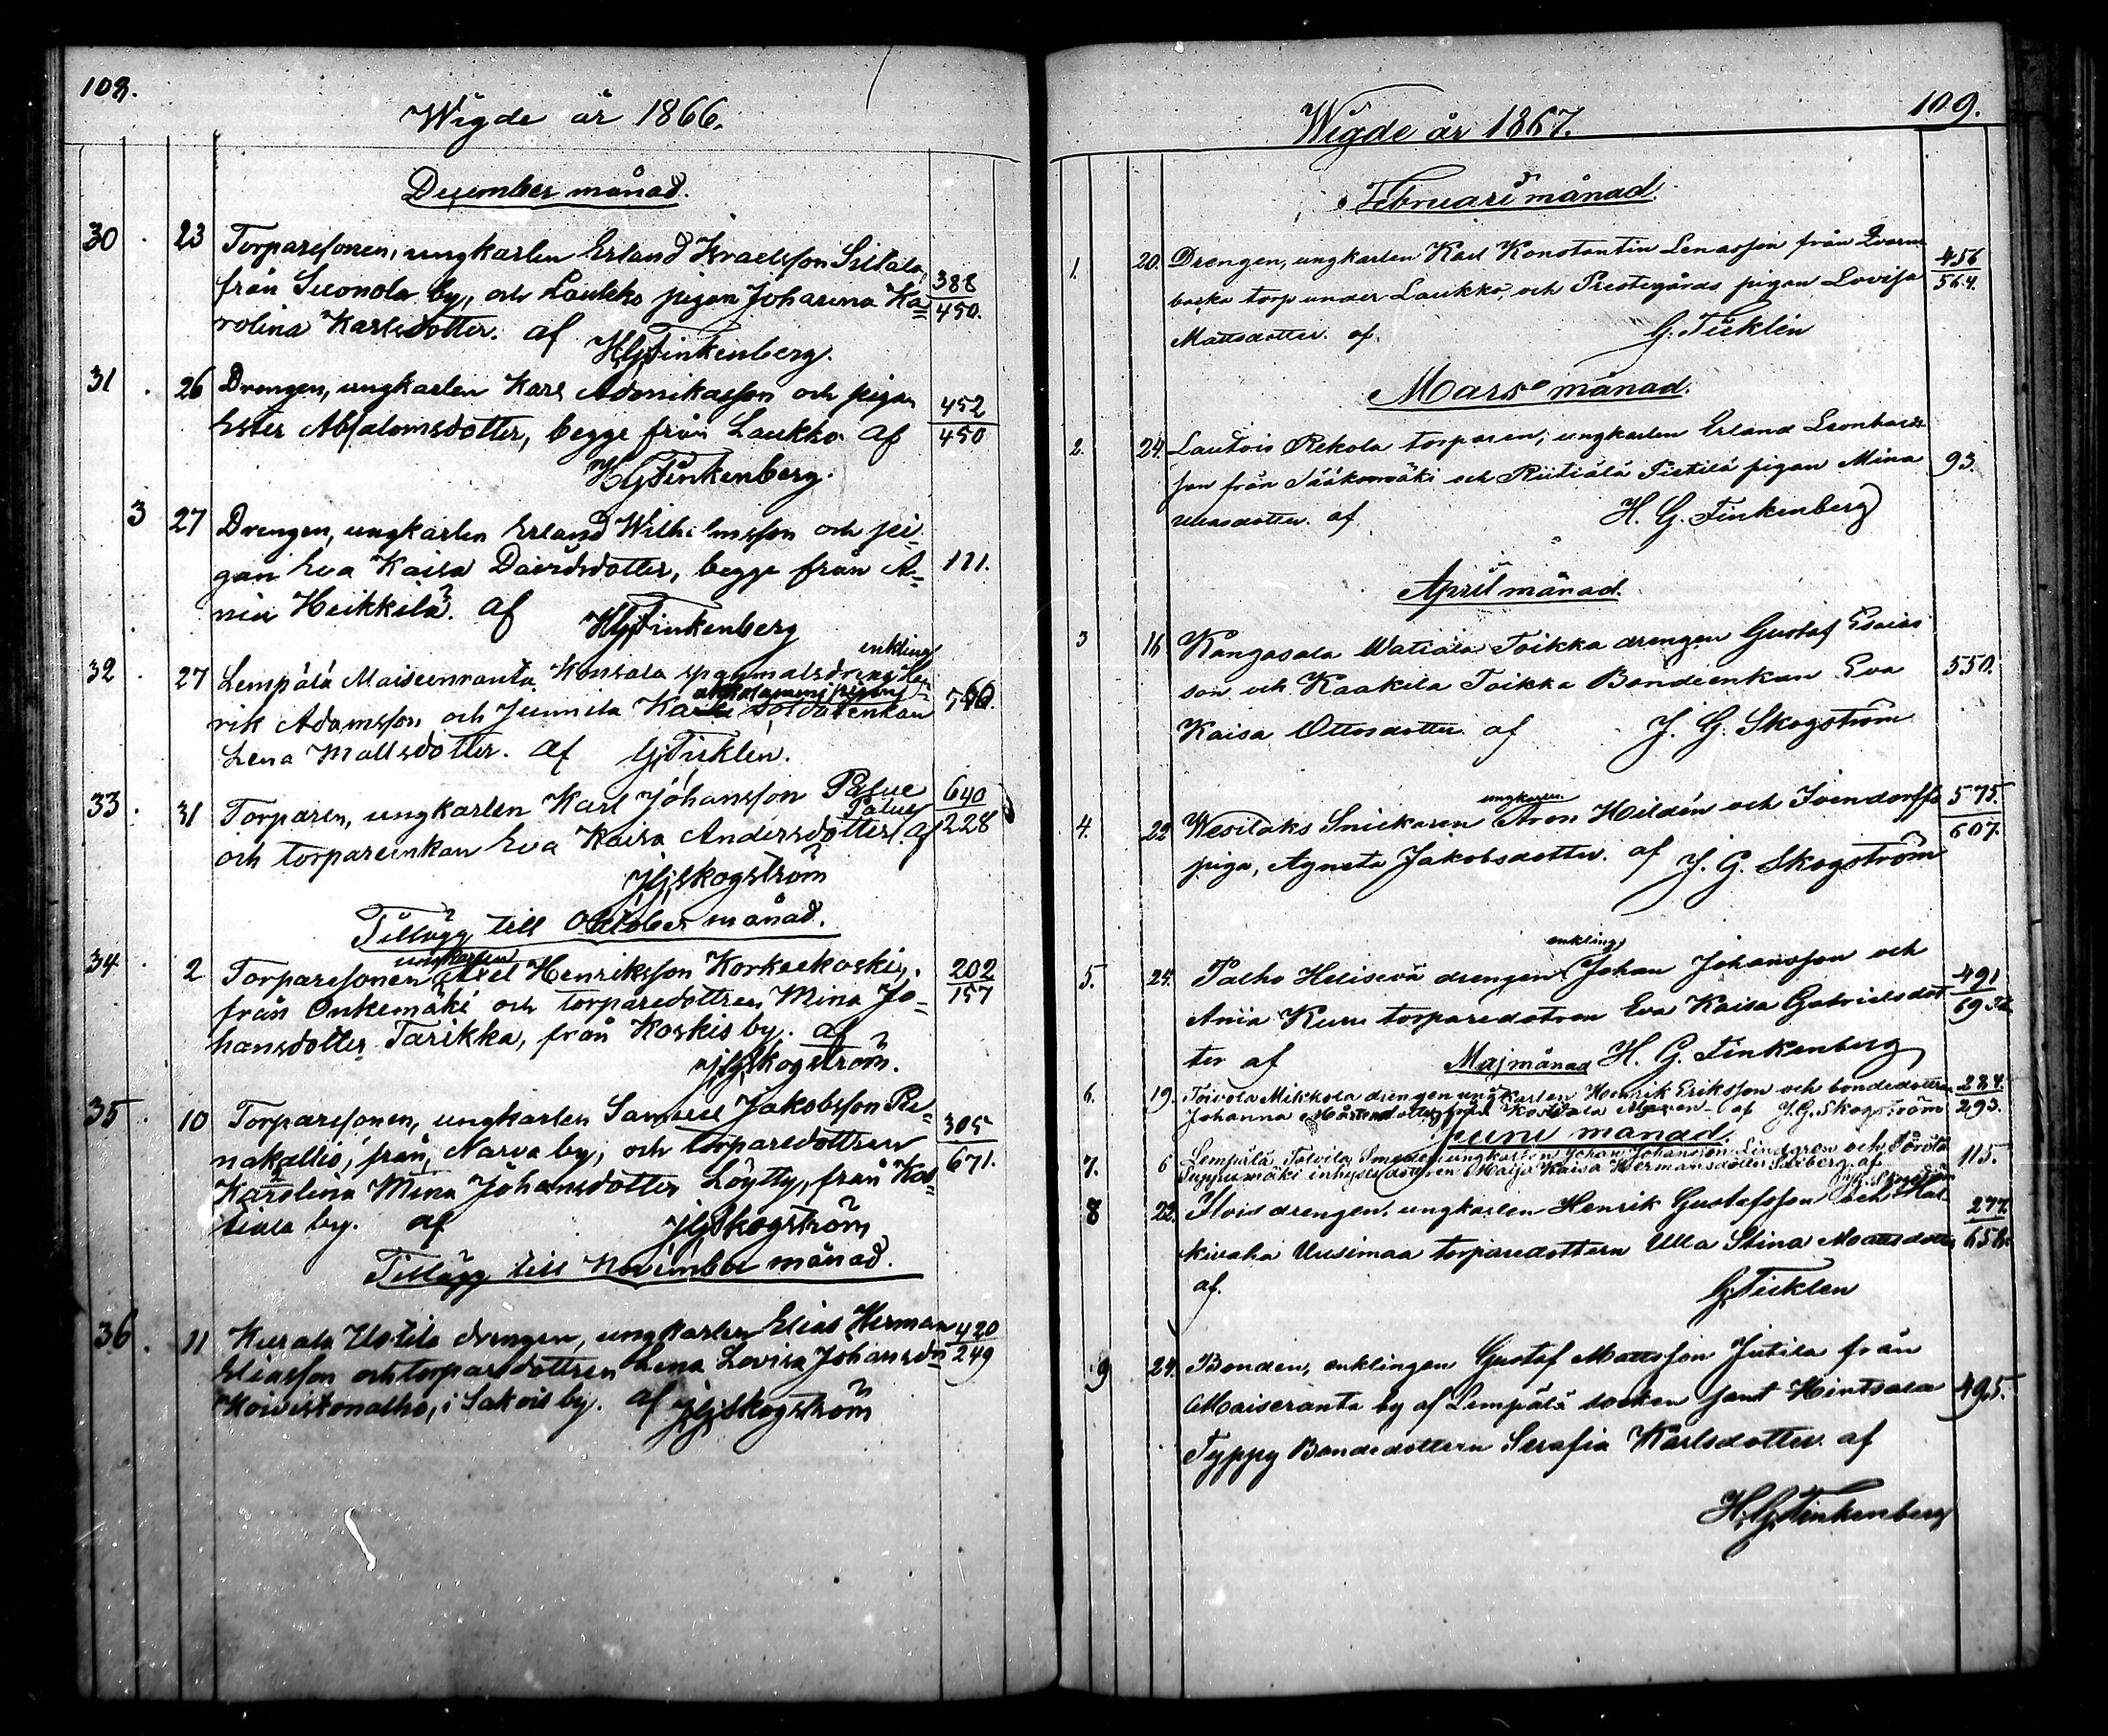 108.
Wigde år 1866.
December månad.
30 . 23 Torparesonen, ungkarlen Erland Israelsson Siltala, 388
från Suonola by, och Laukko pigan Johanna Ka= 450.
rolina Karlsdotter. af HGTinkenberg.
31 . 26 Drengen, ungkarlen Karl Adamikasson och pigan 452
Ester Absalomsdotter, begge från Laukko af 450
HGTinkenberg.
3 27 Drengen, ungkarlen Erland Wilhelmsson och pi=
gan Eva Kaisa Davidsdotter, begge från A= 111.
nia Heikkilä. af HGTinkenberg
enkling
32 . 27 Lempälä Maisenranta Konsala spanmålsdreng Hen=
rik Adamsson och Junnila soldatenkan 560.
Lena Mattsdotter. af GTicklén.
33 . 31 Torparen, ungkarlen Karl Johansson Palue 640
och torpareenkan Eva Kaisa Andersdotter Palue af 228
JGSkogström
Tillägg till Oktober månad.
ungkarlen
34 . 2 Torparesonen Axel Henriksson Korkeekoski, 202
från Onkemäki och torparedottren Mina Jo= 157
hansdotter Tarikka, från Koskis by. af
JGSkogström.
35 . 10 Torparesonen, ungkarlen Samuel Jakobsson Pu= 305
nakallio, från Narva by, och torparedottren 671.
Karolina Mina Johansdotter Löytty, från Kos=
tiala by. af JGSkogström
Tillägg till November månad.
36 . 11 Kurala Ustila drengen, ungkarlen Elias Herman 420
Eliasson och torparedottren Lena Lovisa Johansdr 249
Koivistonalho, i Sakois by. af JGSkogström
109.
Wigde år 1867.
Februari månad.
1. 20. Drengen, ungkarlen Karl Konstantin Lenasson från Qvarn 456
backa torp under Laukko, och Prestegårds pigan Lovisa 564.
Mattsdotter. af. G. Ticklén
Mars månad.
2. 24. Lautois Rekola torparen, ungkarlen Erland Leonhards
son från Jääkonmäki och Riitiälä Pietilä pigan Mina 93.
Ulrasdotter. af H. G. Tinkenberg
April månad.
3 16 Kangasala Watiala Toikka drengen Gustaf Esaias
son och Kaakila Toikka Bondeenkan Eva 550.
Kaisa Ottosdotter af J. G. Skogström
ungkarlen
4. 22 Wesilaks Snickaren Aron Heldén och Ivendorffs 575.
piga, Agneta Jakobsdotter. af J. G. Skogström 607.
enkling
5. 24. Palho Heliseva drengen Johan Johansson och 491
Ania Kuru torparedotren Eva Kaisa Gabrielsdot
ter af H. G. Tinkenberg
Maj månad
6. 19. Toivola Mikkola drengen ungkarlen Henrik Eriksson och bondedottren 284.
Johanna Mårtensdotter från af J.G. Skogström 293.
Juni månad.
7. 6 Lempälä Tolvila Smeden, ungkarlen Johan Johansson Lindgren och
inhysesdottren Maija Kaisa Hermansdotter af 115.
J.G. Skogström
8 22. Hois drengen, ungkarlen Henrik Gustafsson och Hal 277.
kivaha Uusimaa torparedottern Ulla Stina Mattsdotter 658.
af. GTicklén
9 24. Bonden, enklingen Gustaf Mattsson Jutila från
Maiseranta by af Lempälä socken samt Hintsala 495.
Typpy Bondedottern Serafia Karlsdotter. af
H.G.Tinkenberg